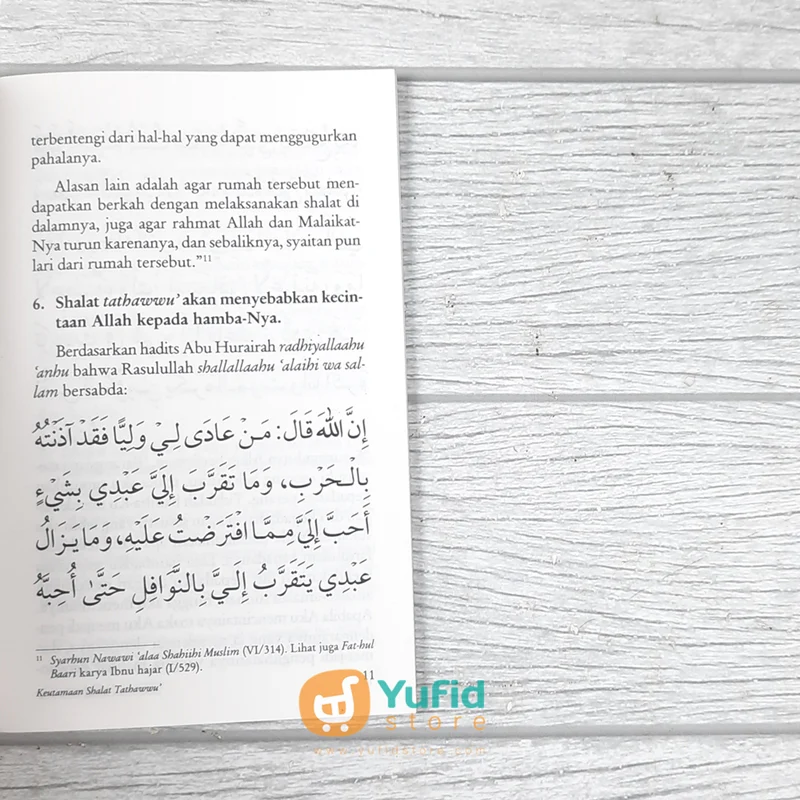 terbentengi dari hal-hal yang dapat menggugurkan
pahalanya.
Alasan lain adalah agar rumah tersebut men-
dapatkan berkah dengan melaksanakan shalat di
dalamnya, juga agar rahmat Allah dan Malaikat-
Nya turun karenanya, dan sebaliknya, syaitan pun
lari dari rumah tersebut."11
6. Shalat tathawwu' akan menyebabkan kecin-
taan Allah kepada hamba-Nya.
Berdasarkan hadits Abu Hurairah radhiyallaahu
'anhu bahwa Rasulullah shallallaahu 'alaihi wa sal-
lam bersabda:
إِنَّ اللهَ قَالَ: مَنْ عَادَى لِيْ وَلِيًّا فَقَدْ آذَنْتُهُ
بِالْحَرْبِ، وَمَا تَقَرَّبَ إِلَيَّ عَبْدِي بِشَيْءٍ
أَحَبَّ إِلَيَّ مِمَّا افْتَرَضْتُ عَلَيْهِ، وَمَا يَزَالُ
عَبْدِي يَتَقَرَّبُ إِلَيَّ بِالنَّوَافِلِ حَتَّى أُحِبَّهُ
11 Syarhun Nawawi 'alaa Shahiihi Muslim (VI/314). Lihat juga Fat-hul
Baari karya Ibnu hajar (I/529).
Keutamaan Shalat Tathawwu'
11
Yufid
store
www.yufidstore.com